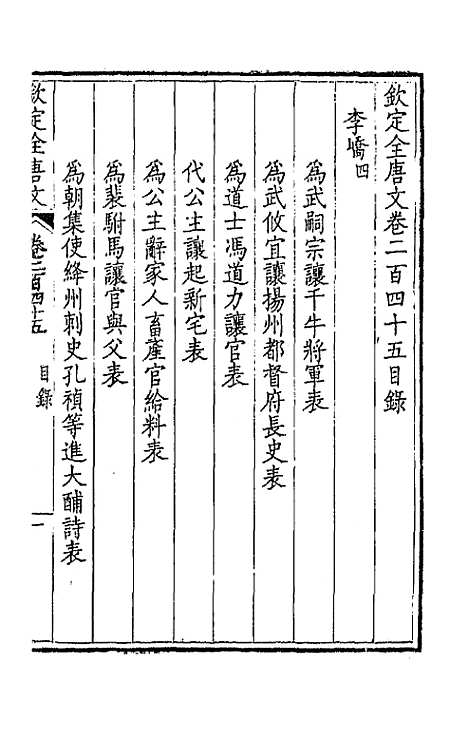 欽定全唐文卷二百四十五目錄
李嶠四
爲武嗣宗讓千牛將軍表
爲武攸宜讓揚州都督府長史表
爲道士馮道力讓官表
代公主讓起新宅表
爲公主辭家人畜產官給料表
爲裴駙馬讓官與父表
爲朝集使絳州刺史孔禎等進大酺詩表
欽定全唐文
卷二百四十五
目錄
一